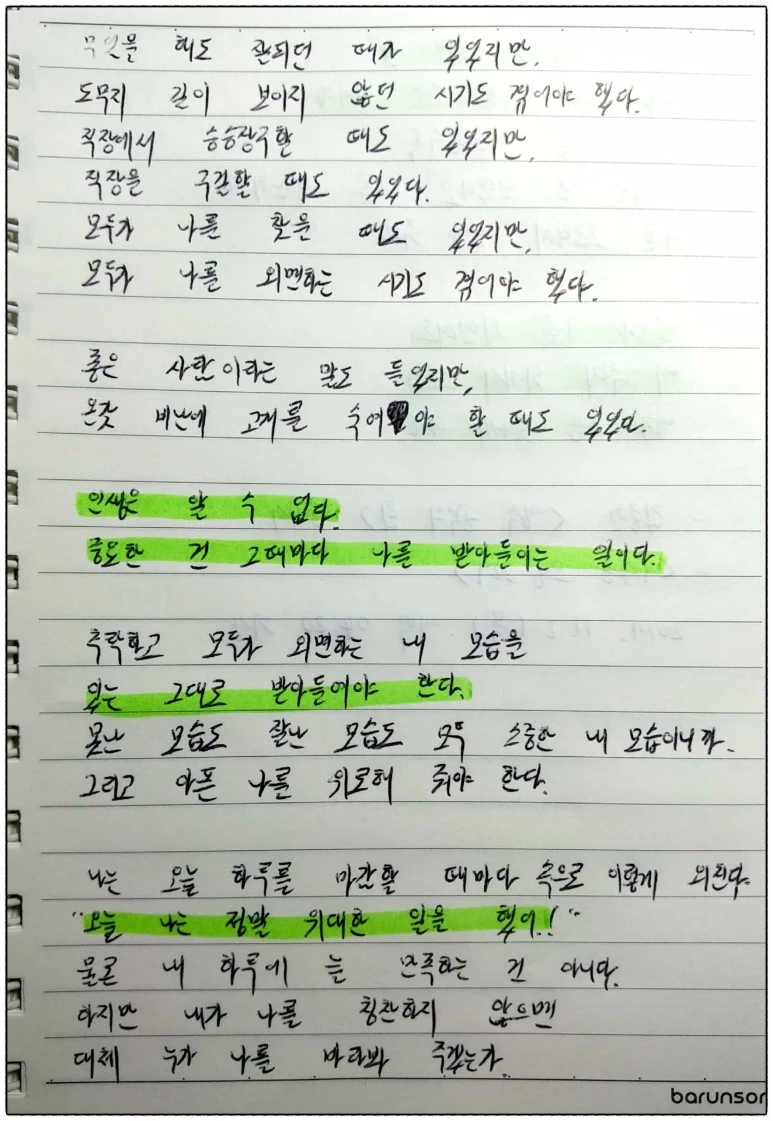 무엇을 해도 잘되던 때가 있었지만,
도무지 길이 보이지 않던 시기도 겪어야 했다.
직장에서 승승장구할 때도 있었지만,
직장을 구걸할 때도 있었다.
모두가 나를 찾을 때도 있었지만,
모두가 나를 외면하는 시기도 겪어야 했다.
좋은 사람이라는 말도 들었지만,
온갖 비난에 고개를 숙여야 할 때도 있었다.
인생은 알 수 없다.
중요한 건 그때마다 나를 받아들이는 일이다.
추락하고 모두가 외면하는 내 모습을
있는 그대로 받아들여야 한다.
못난 모습도 잘난 모습도 모두 소중한 내 모습이니까.
그리고 아픈 나를 위로해 줘야 한다.
나는 오늘 하루를 마감할 때마다 속으로 이렇게 외친다.
"오늘 나는 정말 위대한 일을 했어!"
물론 내 하루에 늘 만족하는 건 아니다.
하지만 내가 나를 칭찬하지 않으면
대체 누가 나를 바라봐 주겠는가.
barunson